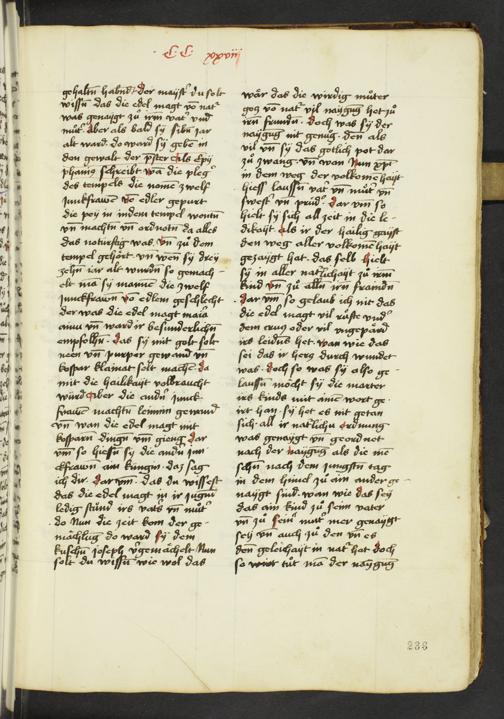 C C xxviij
gehaltn habnd der mayst du solt
wissn das die edel magt vo nat
was genaigt zu irm vat vnd
mut aber als bald sy sibn jar
alt ward do ward sy gebe in
don gewalt der pster als Epy
phanius schreibt wa die pfleg
des tempels die nome zwelf
junckfrawe vo edler gepurt
die pey in indem tempel wontn
vn machtn vn ordnotn da alles
das noturftig was vn zu dem
tempel gehört vn wen sy drey
zehn iar alt wurdn so gemach
elt ma sy manne die zwelf
junckfrawn vo edlem geschlecht
der was die edel magt maria
ainu vn ward ir besunderlichn
empfolhn das sy mit golt solt
neen vn purper gewand vn
kospar klainat solt mache da
mit die hailikayt volbraucht
wurd aber die andn junck
frawe machtn leinnin gewand
vn wan die edel magt mit
kosparn dingn vm gieng dar
vm so hiessn sy die andn jun
ckfrawn ain kungin das sag
ich dir dar vm das du wissest
das die edel magt in ir jugnt
ledig stund irs vats vn mut
do nun die zeit kom der ge
machlug do ward sy dem
kuschn joseph vgemächelt Nun
solt du wissn wie wol das
wär das die wirdig muter
gos vo nat vil naygug het zu
irn frundn doch was sy der
naygug nit genug den als
vil vn sy das götlich pot dar
zu zwang vn won Nun xpm
in dem weg der volkomehayt
hiess laussn vat vn mut vn
swest vn prud dar vm so
hielt sy sich all zeit in die le
dikayt als ir der hailig gayst
den weg aller volkomehayt
gezaygt hat das selb hielt
sy in aller natlichayt zu irm
kind vn zu alln irn fraindn
dar vm so gelaub ich nit das
die edel magt vil rufte vnd
dem crutz oder vil vngepärd
irs leidns het wan wie das
sei das ir hertz durch wundet
was doch so was sy also ge
laussn möcht sy die marter
irs kinds mit aime wort ge
irt han sy het es nit getan
sich all ir natlichu ordnung
was genaygt vn geordnet
nach der naygug als die me
schn nach dem jungstn tag
in dem himel zu ain ander ge
naygt sind wan wie das sey
das ain kind zu seim vater
vn zu seinr mutr mer genaygt
sey vn auch zu den vn es
den geleichayt in nat hat doch
so wirt tut ma der naygug
238